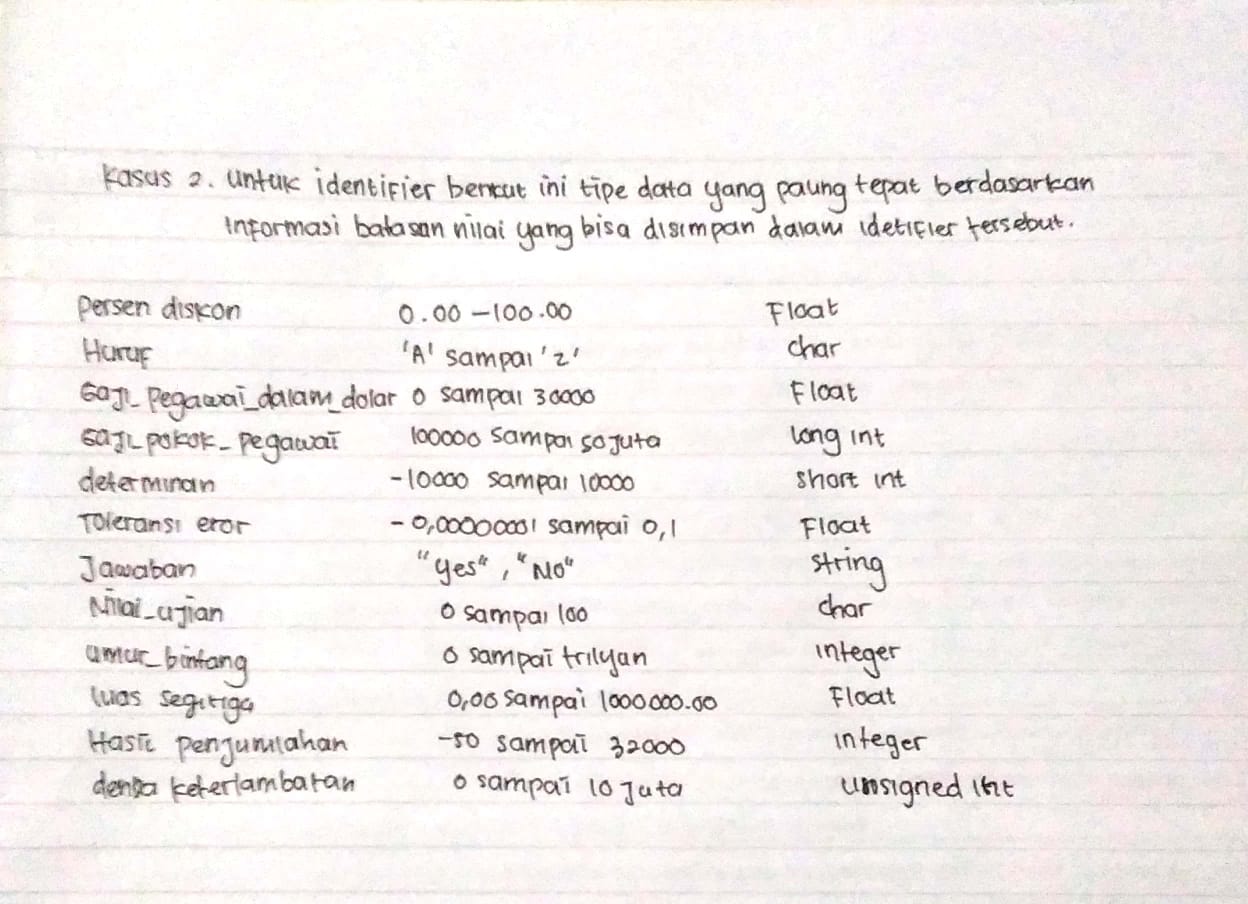 Kasus 2. Untuk identifier berikut ini tipe data yang paling tepat berdasarkan
Informasi batasan nilai yang bisa disimpan dalam idetifier tersebut.
Persen diskon 0.00 - 100.00 Float
Huruf 'A' sampai 'z' char
Gaji_pegawai_dalam_dolar 0 sampai 30000 Float
Gaji_pokok_pegawai 100000 sampai 50 juta long int
determinan -10000 sampai 10000 short int
Toleransi eror -0,00000001 sampai 0,1 Float
Jawaban "Yes", "No" string
Nilai_ujian 0 sampai 100 char
umur_bintang 0 sampai trilyan integer
luas segitiga 0,00 sampai 1000000.00 Float
Hasil penjumlahan -50 sampai 32000 integer
denda keterlambatan 0 sampai 10 juta unsigned int